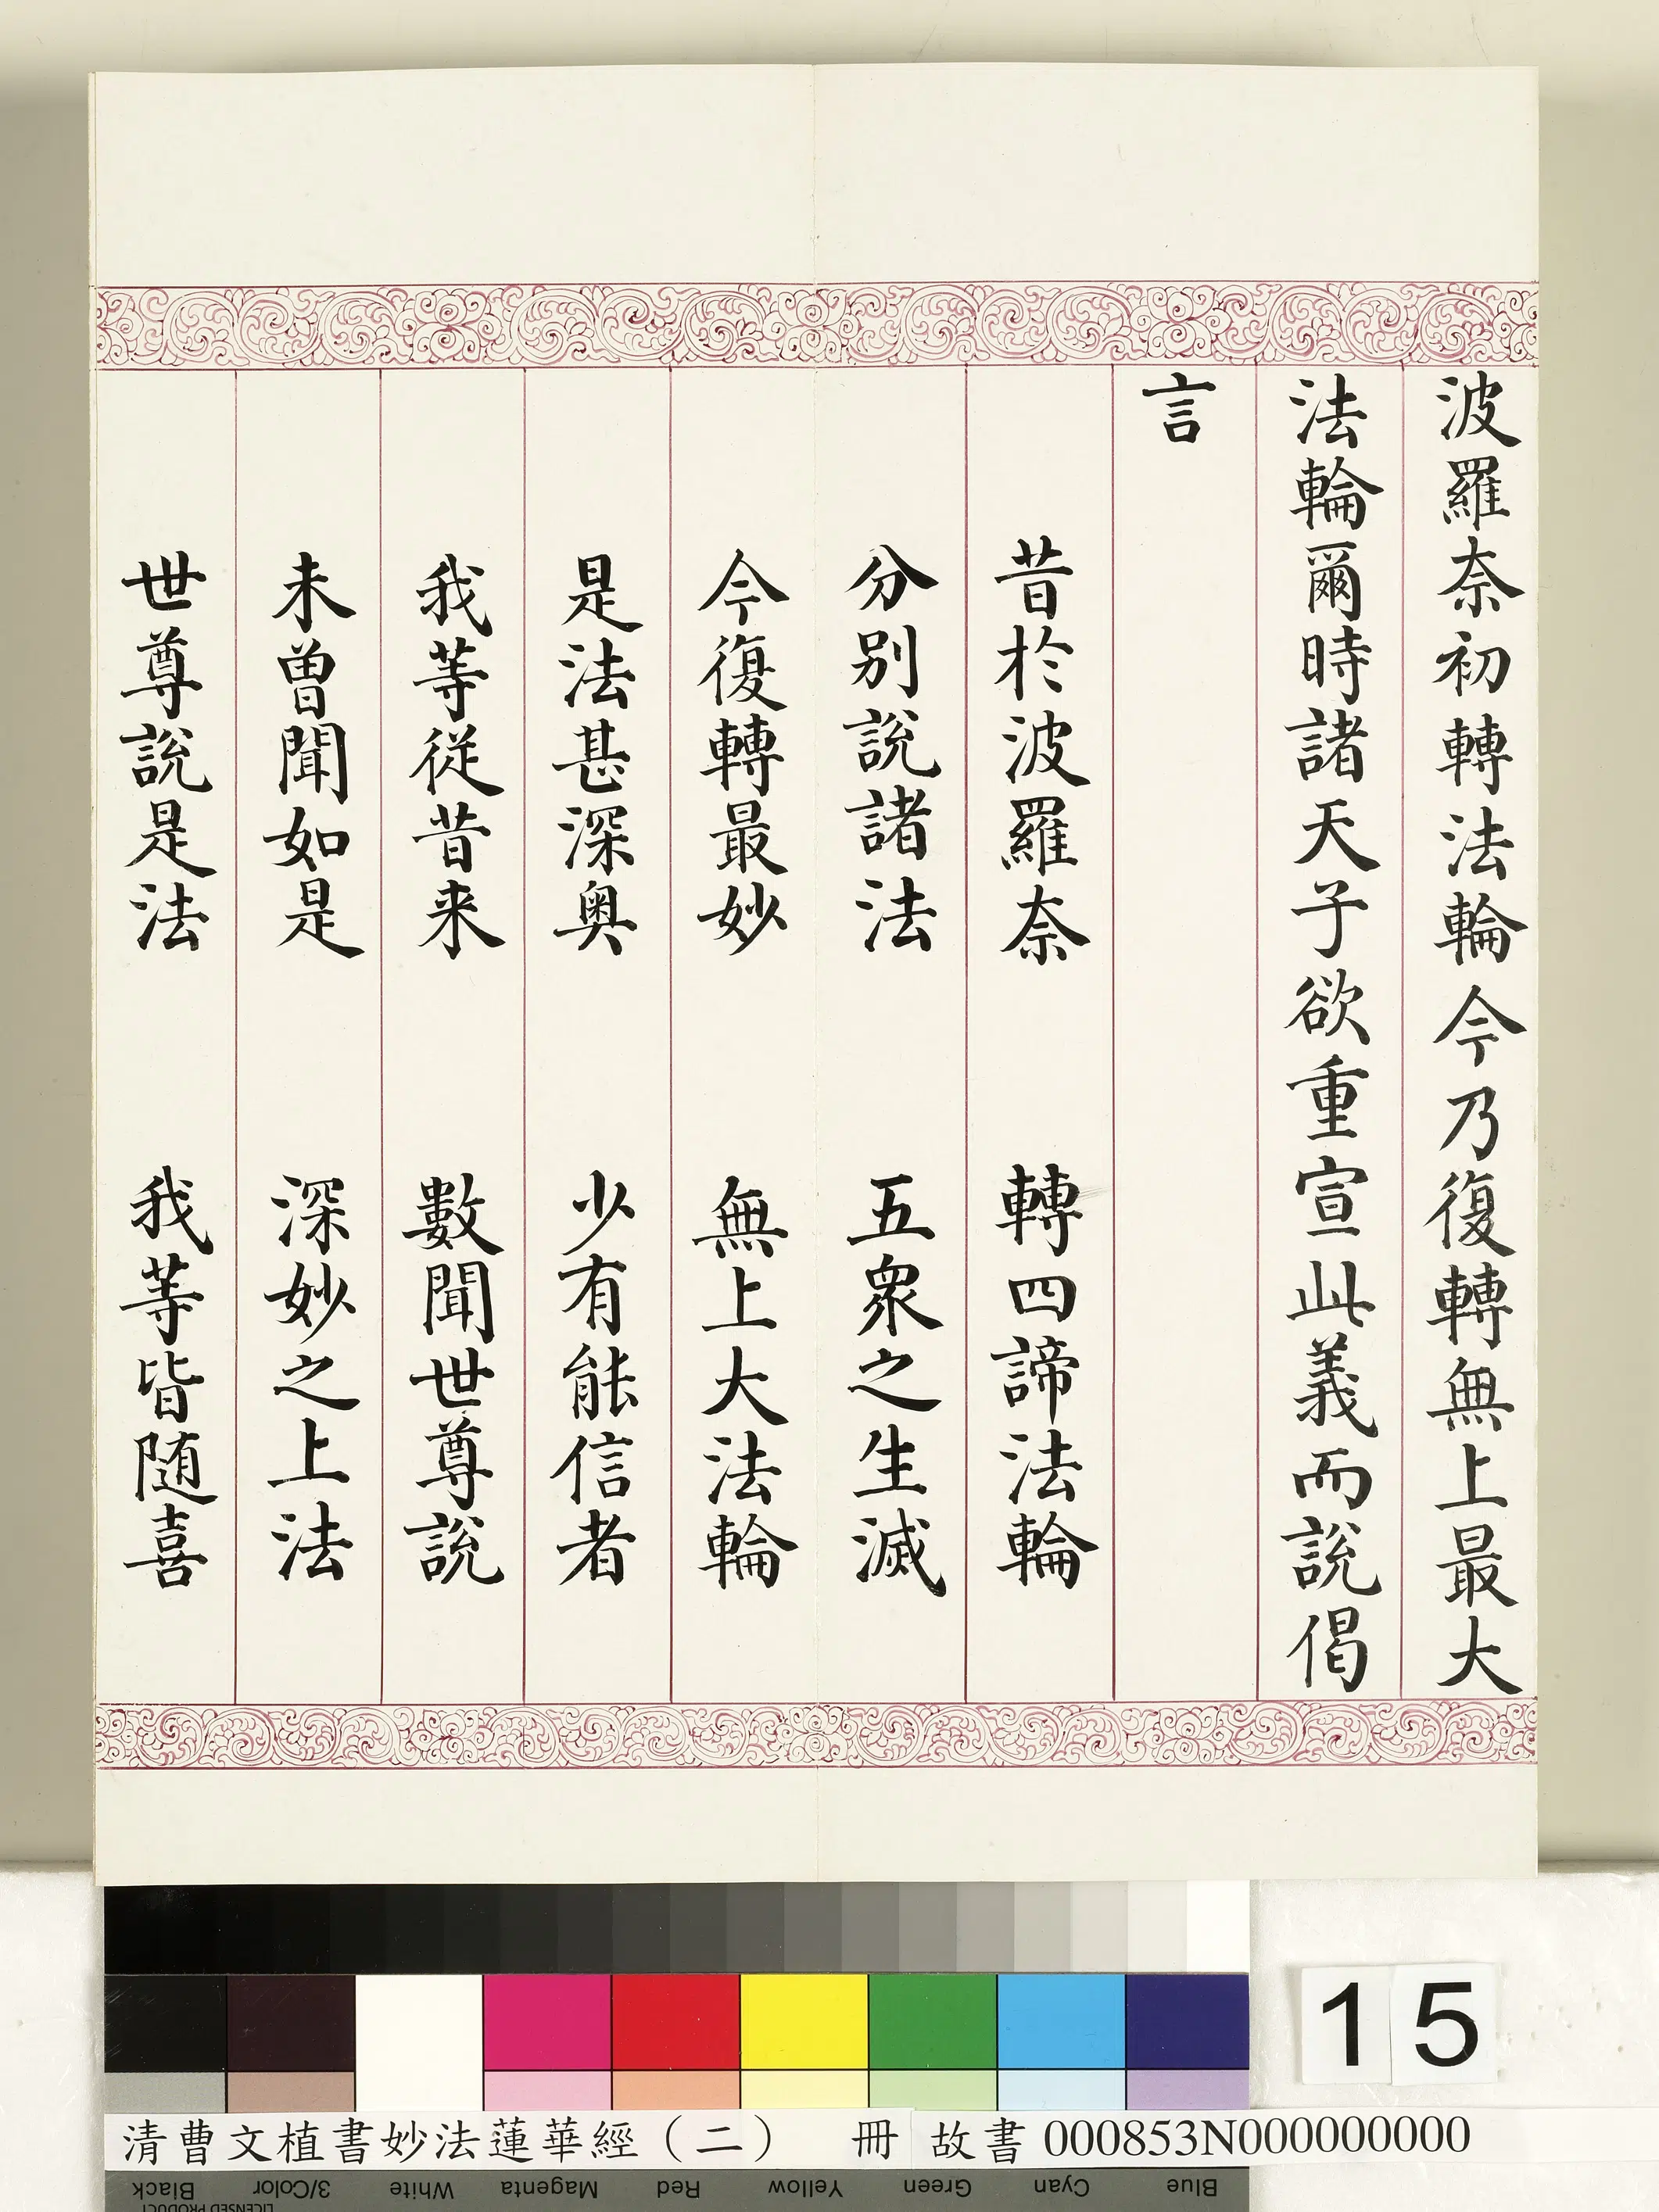 波羅奈初轉法輪今乃復轉無上最大
法輪爾時諸天子欲重宣此義而說偈
言
昔於波羅奈　轉四諦法輪
分別說諸法　五眾之生滅
今復轉最妙　無上大法輪
是法甚深奧　少有能信者
我等從昔来　數聞世尊說
未曾聞如是　深妙之上法
世尊說是法　我等皆随喜
15
清曹文植書妙法蓮華經（二）　冊　故書 000853N000000000
Black 3/Color White Magenta Red Yellow Green Cyan Blue
LICENSED PRODUCT